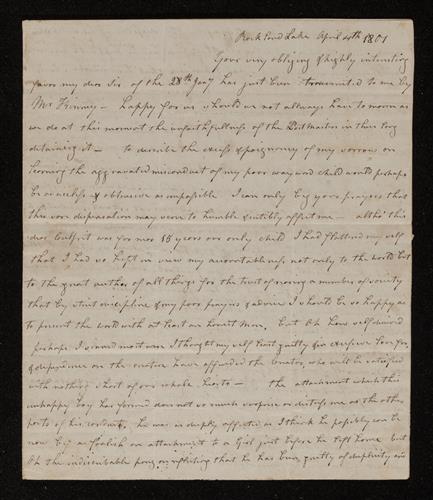 April 20th 1801
Your very obliging & highly interesting
favor my dear Sir of the 28th Jany has just been transmitted to me by
Mr Kinney — happy for us should we not allways have to mourn as
we do at this moment the unfaithfullness of the Postmaster in thus long
detaining it — to describe the excess & poignancy of my sorrow on
learning the aggravated misconduct of my poor wayward child would perhaps
be as useless & obtrusive as impossible I can only beg your prayers that
this sore dispensation may serve to humble & suitibly affect me — altho' this
dear Culprit was for now 18 years our only child I had flattered my self
that I had so kept in view my accountableness not only to the world but
to the great author of all things for the trust of rearing a member of society
that by strict discipline & my poor prayers & advice I should be so happy as
to present the world with at least an honest Man. but Oh how self deceived
perhaps I sinned most when I thought my self least guilty & excessive love for
& dependance on the creature have offended the Creator, who will be satisfied
with nothing short of our whole hearts — the attachment which this
unhappy boy has formed does not so much surprise or distress me as the other
parts of his conduct. he was as deeply affected as I think he possibly can be
now by as foolish an attachment to a Girl just before he left home but
Oh the indiscribable pang on reflecting that he has been guilty of duplicity and